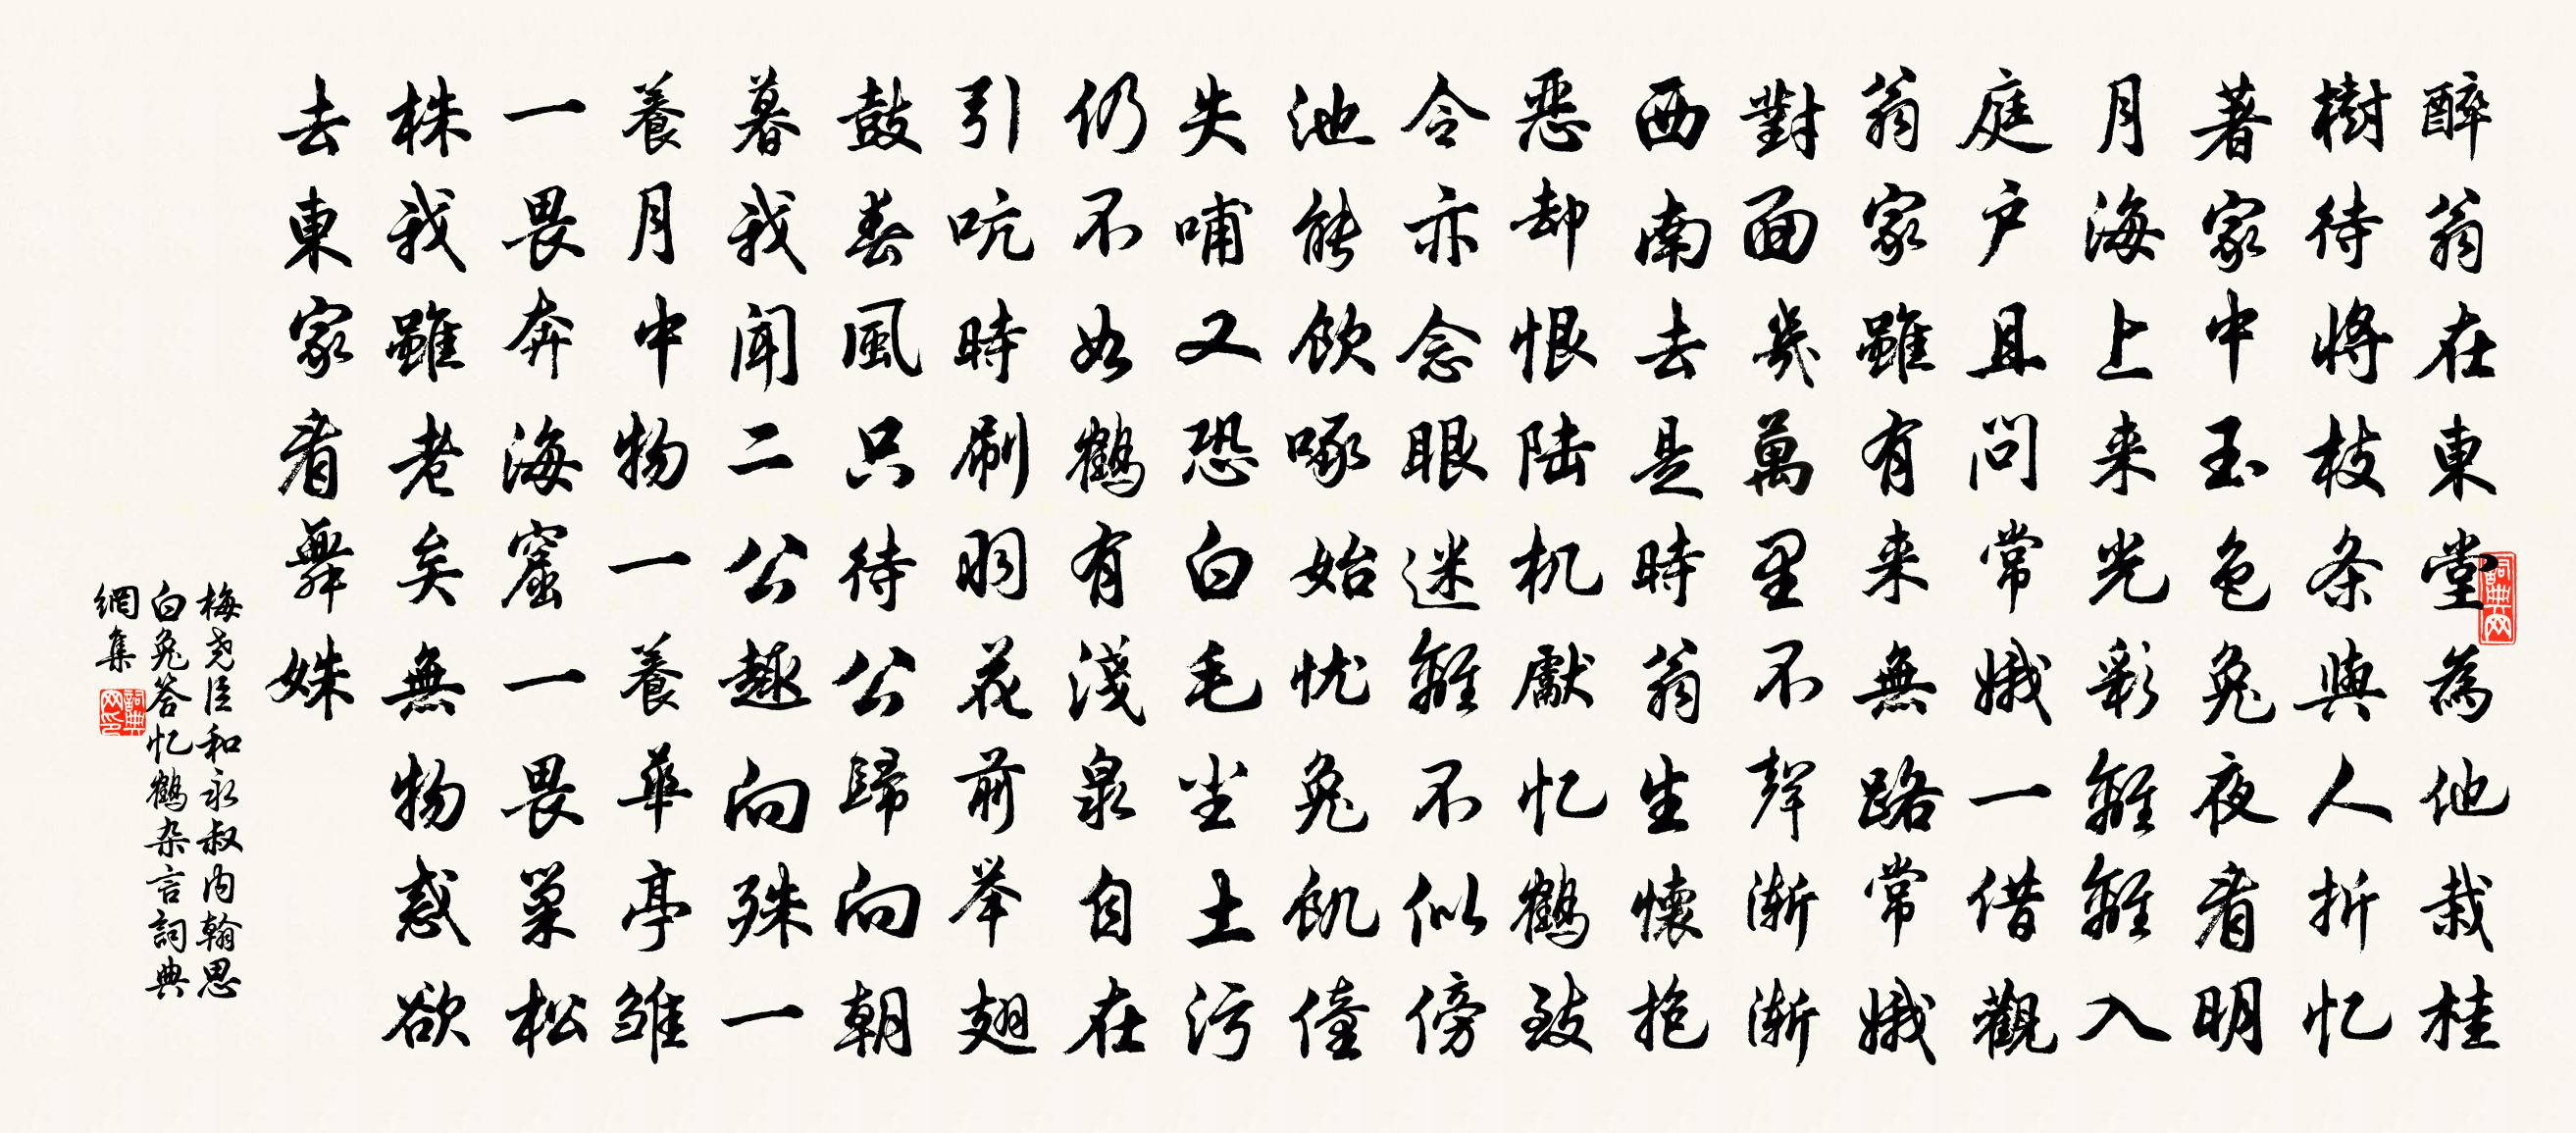 醉翁在東堂為他栽桂
樹待將枝条與人折忆
著家中玉色兔夜看明
月海上来光彩離離入
庭户且问常娥一借觀
翁家雖有来無路常娥
對面幾萬里不聲漸漸
西南去是時翁生懷抱
恶却恨陆机獻忆鶴致
令亦念眼迷離不似傍
池能飲啄始忧兔飢僮
失哺又恐白毛坐土污
仍不如鶴有淺泉自在
引吭時刷羽花前举翅
鼓春風只待公歸向朝
暮我闻二公趣向殊一
養月中物一養華亭雏
一畏奔海窟一畏巢松
株我雖老矣無物惑欲
去東家看舞姝
梅尧臣和永叔内翰思
白兔答忆鶴杂言詞典
網集